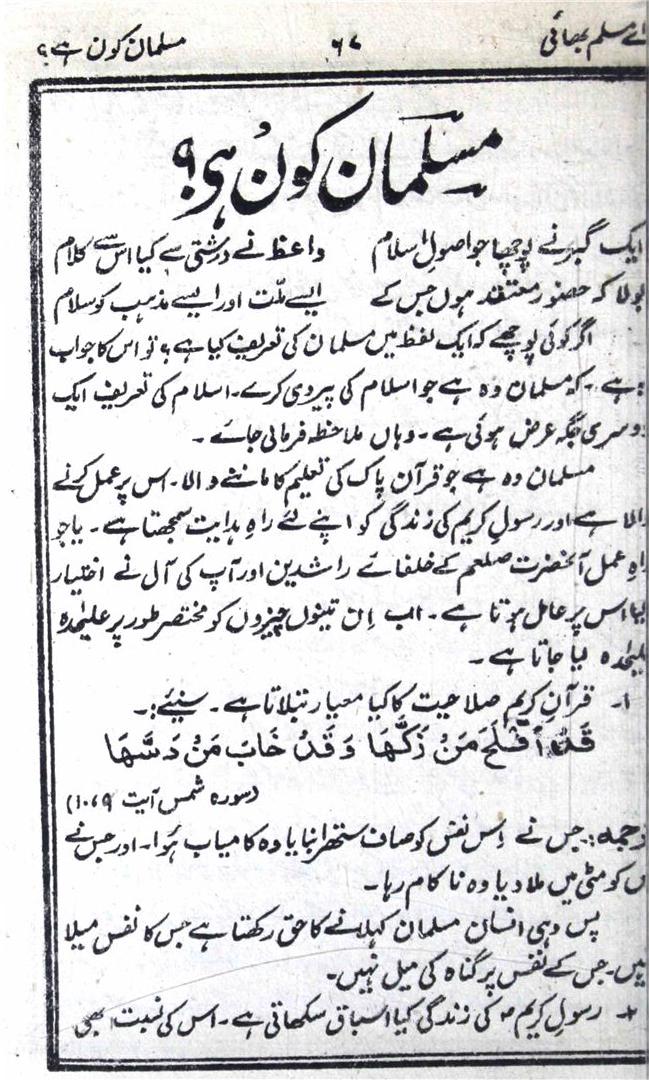 اے مسلم بھائی ۶۷ مسلمان کون ہے؟
مسلمان کون ہی؟
ایک گبر نے پوچھا جو اصولِ اسلام واعظ نے درشتی سے کیا اس سے کلام
بولا کہ حضور معتقد ہوں جس کے ایسے ملّت اور ایسے مذہب کو سلام
اگر کوئی پوچھے کہ ایک لفظ میں مسلمان کی تعریف کیا ہے؟ تو اس کا جواب
ہے۔ کہ مسلمان وہ ہے جو اسلام کی پیروی کرے۔ اسلام کی تعریف ایک
دوسری جگہ عرض ہوئی ہے۔ وہاں ملاحظہ فرمالی جائے۔
مسلمان وہ ہے جو قرآن پاک کی تعلیم کا ماننے والا۔ اس پر عمل کرنے
والا ہے اور رسولِ کریم کی زندگی کو اپنے لئے راہِ ہدایت سمجھتا ہے۔ یا جو
راہِ عمل آنحضرت صلعم کے خلفائے راشدین اور آپ کی آل نے اختیار
کیا اس پر عامل ہوتا ہے۔ اب اِن تینوں چیزوں کو مختصر طور پر علیٰحدہ
علیٰحدہ لیا جاتا ہے۔
۱۔ قرآنِ کریم صلاحیت کا کیا معیار بتلاتا ہے۔ سنیئے:۔
قَدْ اَفْلَحَ مَنْ زَكّٰهَا وَقَدْ خَابَ مَنْ دَسّٰهَا
(سورہ شمس آیت ۹، ۱۰)
ترجمہ:۔ جس نے اِس نفس کو صاف ستھرا بنایا وہ کامیاب ہؤا۔ اور جس نے
اس کو مٹی میں ملا دیا وہ ناکام رہا۔
پس وہی انسان مسلمان کہلانے کا حق رکھتا ہے جس کا نفس میلا
نہیں۔ جس کے نفس پر گناہ کی میل نہیں۔
۲۔ رسولِ کریمؐ کی زندگی کیا اسباق سکھاتی ہے۔ اس کی نسبت ابھی